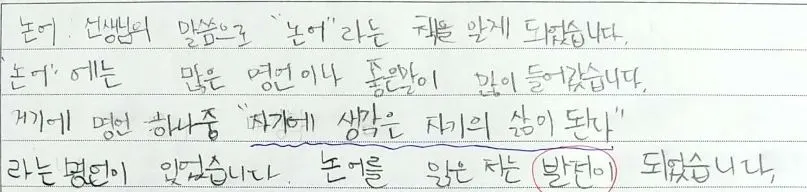 논어 선생님의 말씀으로 "논어"라는 책을 알게 되었습니다.
"논어"에는 많은 명언이나 좋은말이 많이 들어갔습니다.
거기에 명언 하나중 "자기에 생각은 자기의 삶이 된다"
라는 명언이 있었습니다. 논어를 읽은 저는 발전이 되었습니다,